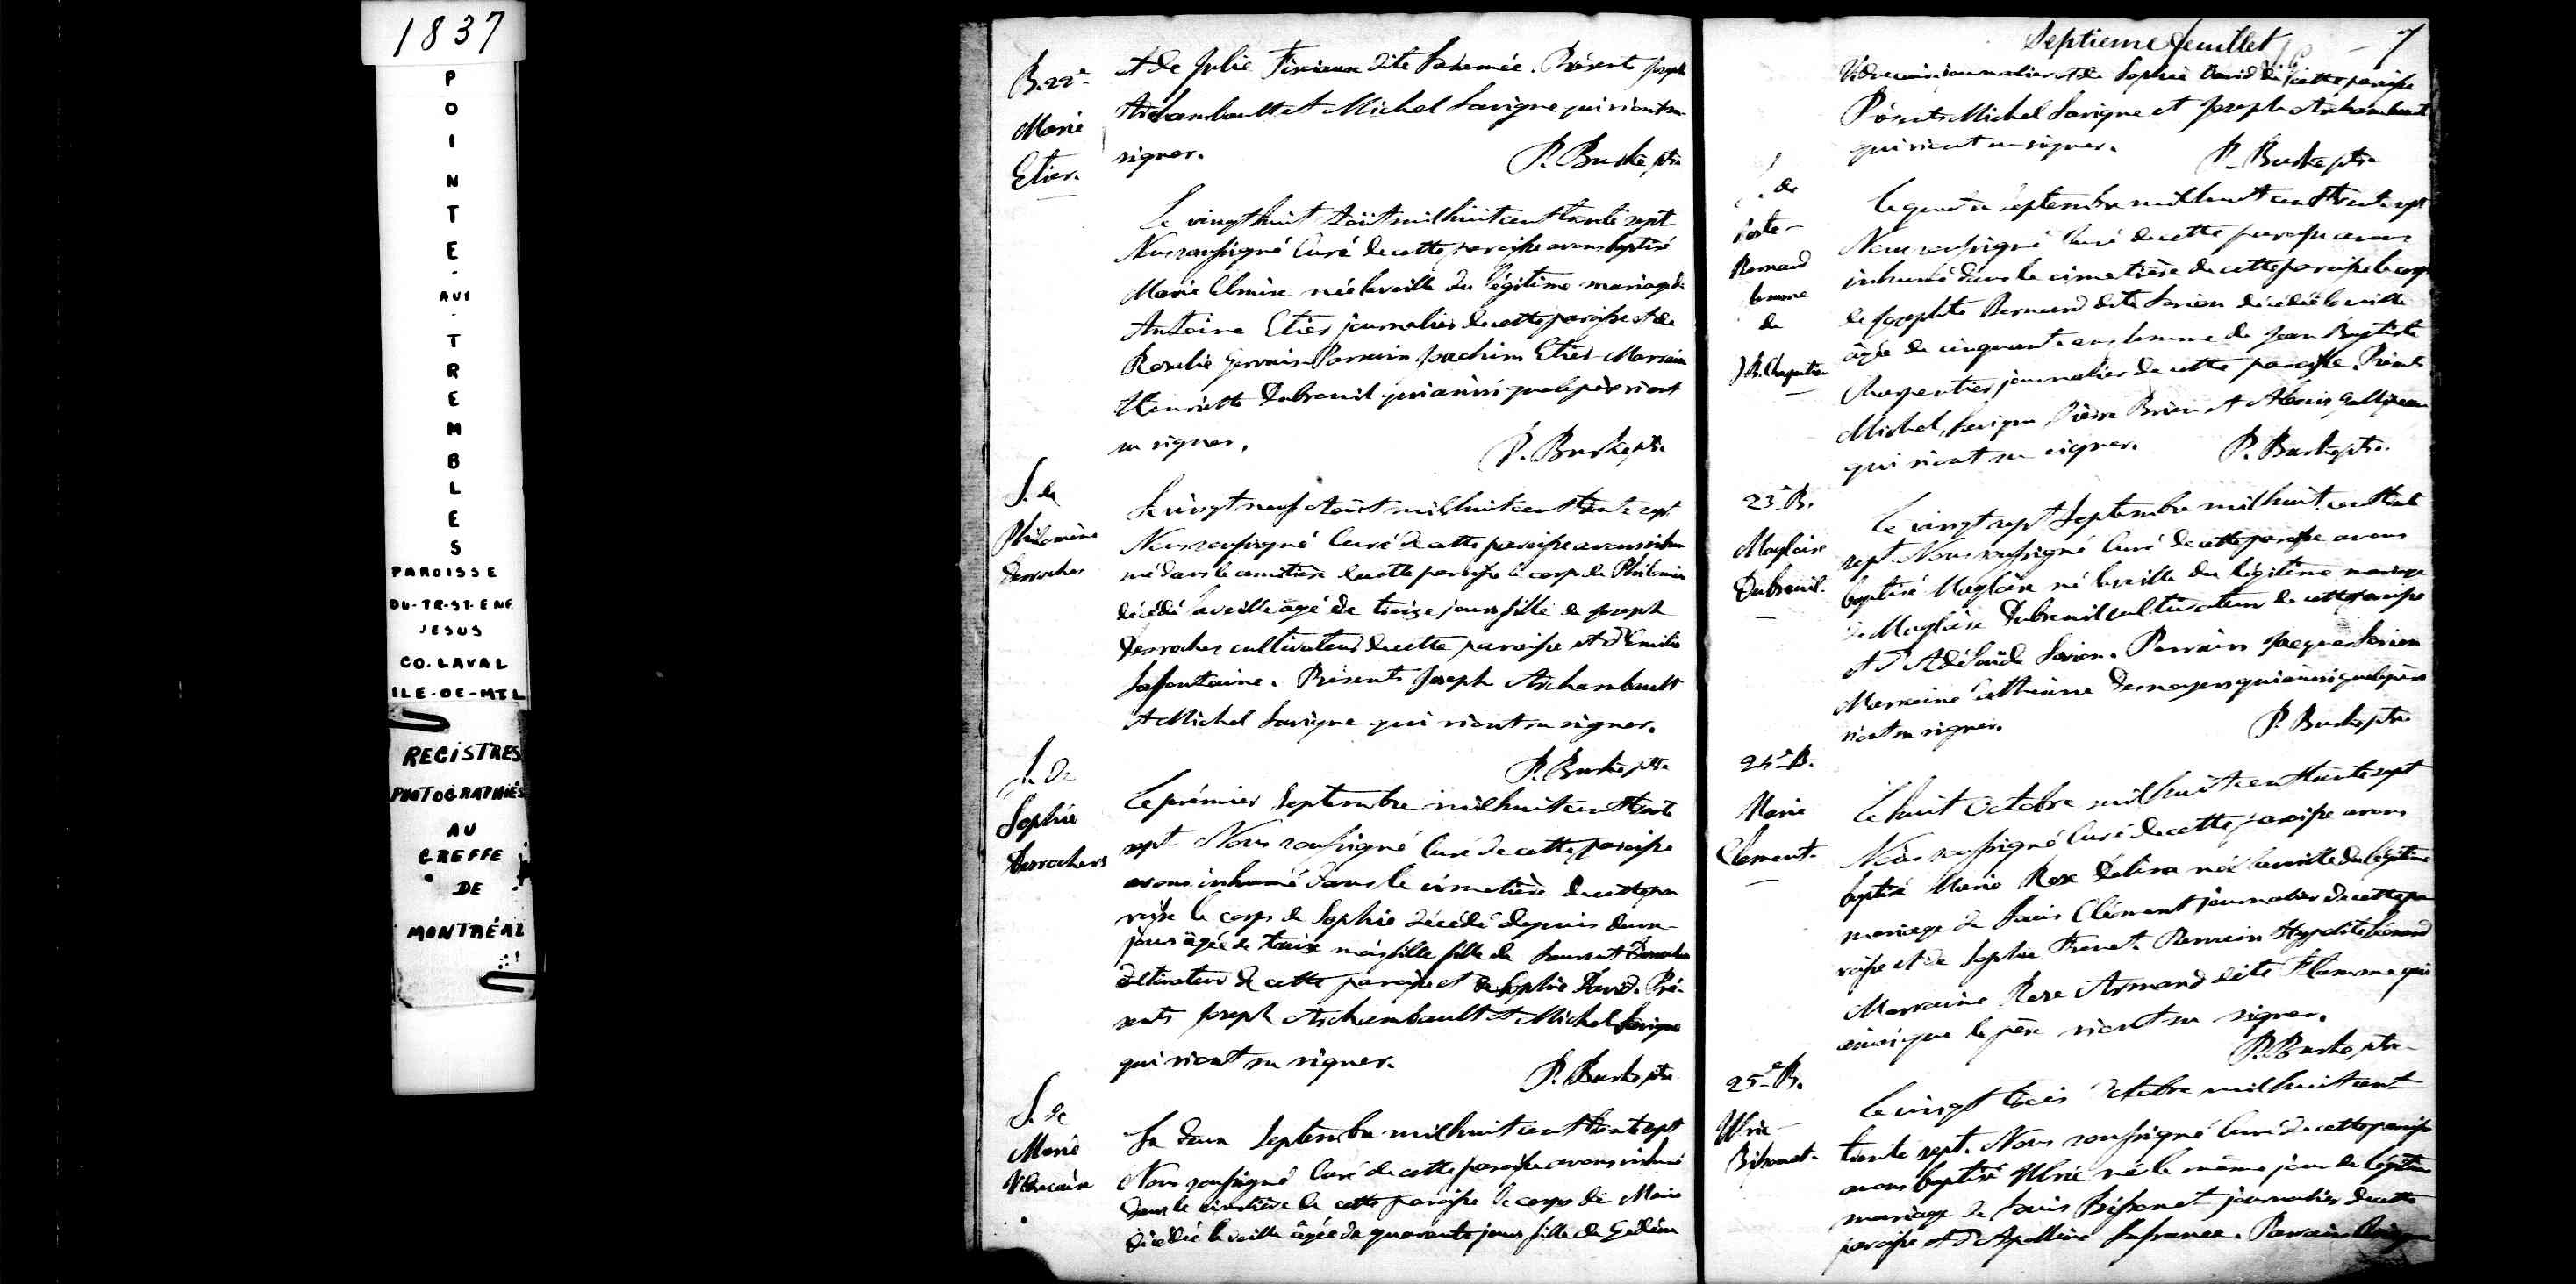 1837
P
O
I
N
T
E
-
AUX
-
T
R
E
M
B
L
E
S
PAROISSE
DU-TR-ST-ENF.
JESUS
CO. LAVAL
ILE-DE-MTL
REGISTRES
PHOTOGRAPHIÉS
AU
GREFFE
DE
MONTRÉAL
B. 22e
Marie
Etier.
et de Julie ... dite ... Présents Joseph
Archambault et Michel Lavigne qui n'ont su
signer.
P. Burke ptre
Le vingt huit Août mil huit cent trente sept
Nous soussigné Curé de cette paroisse avons baptisé
Marie Elmire née la veille du légitime mariage de
Antoine Etier journalier de cette paroisse et de
Rosalie Gervais. Parrain Joachim Etier Marraine
Henriette Dubreuil qui ainsi que le père n'ont
su signer.
P. Burke ptre
S. de
Philomène
Desroches
Le vingt neuf Août mil huit cent trente sept
Nous soussigné Curé de cette paroisse avons inhu
mé dans le cimetière de cette paroisse le corps de Philomène
décédé la veille âgé de treize jours fille de Joseph
Desroches cultivateur de cette paroisse et d'Emilie
Lafontaine. Présents Joseph Archambault
et Michel Lavigne qui n'ont su signer.
P. Burke ptre
S. De
Sophie
Desrochers
Le prémier Septembre mil huit cent trente
sept Nous soussigné Curé de cette paroisse
avons inhumé dans le cimetière de cette pa
roisse le corps de Sophie décédé depuis deux
jours âgée de treize mois fille fille de Laurent Desroches
cultivateur de cette paroisse et de Sophie David. Pré-
sents Joseph Archambault et Michel Lavigne
qui n'ont su signer.
P. Burke ptre
S. de
Marie
Vdencaire
Le deux Septembre mil huit cent trente sept
Nous soussigné Curé de cette paroisse avons inhumé
dans le cimetière de cette paroisse le corps de Marie
décédée la veille âgée de quarante jours fille de Gédéon
Septieme feuillet
7
journalier et de Sophie David de cette paroisse
Présents Michel Lavigne et Joseph Archambault
qui n'ont su signer.
P. Burke ptre
de
Bernard
femme
de
J. B. Charpentier
Le quatre septembre mil huit cent trente sept
Nous soussigné Curé de cette paroisse avons
inhumé dans le cimetière de cette paroisse le corps
de Josephte Bernard dite Lorion décédée la veille
âgée de cinquante ans femme de Jean Baptiste
Charpentier journalier de cette paroisse. Présents
Michel Lavigne, Pierre Brien et Alexis Galipeau
qui n'ont su signer.
P. Burke ptre.
23e B.
Magloire
Dubreuil.
Le vingt sept Septembre mil huit cent trente
sept. Nous soussigné Curé de cette paroisse avons
baptisé Magloire né la veille du légitime mariage
de Magloire Dubreuil cultivateur de cette paroisse
et d'Adélaïde Lorion. Parrain Jacques Lorion
Marraine Catherine Desnoyers qui ainsi que le père
n'ont su signer.
P. Burke ptre
24e B.
Marie
Clement.
Le huit Octobre mil huit cent trente sept
Nous soussigné Curé de cette paroisse avons
baptisé Marie Rose Delima née la veille du légitime
mariage de Louis Clément journalier de cette pa
roisse et de Sophie Frenet. Parrain Hypolite
Marraine Rose Armand dite Flamme qui
ainsi que le père n'ont su signer.
P. Burke ptre
25e B.
Ulric
Bisonet.
Le vingt trois Octobre mil huit cent
trente sept. Nous soussigné Curé de cette paroisse
avons baptisé Ulric né le même jour du légitime
mariage de Louis Bissonet journalier de cette
paroisse et d'Apolline Lafrance. Parrain